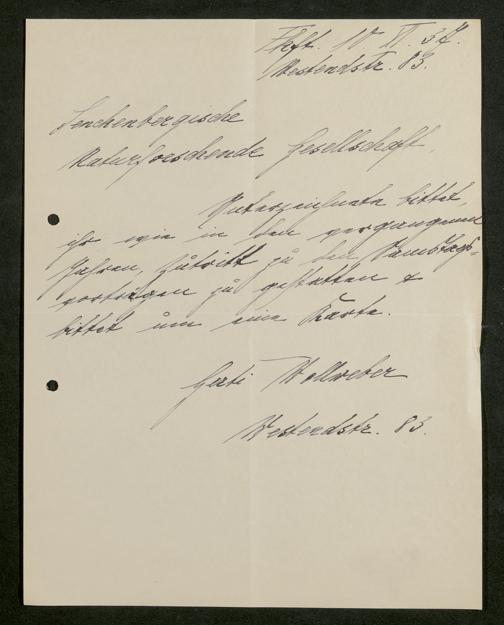 Fkft. 10 XI. 37.
Westendstr. 83.
Senckenbergische
Naturforschende Gesellschaft
Unterzeichnete bittet,
ihr wie in den vergangenen
Jahren, Zutritt zu den Samstags-
vorträgen zu gestatten &
bittet um eine Karte.
Gerti Wollweber
Westendstr. 83.